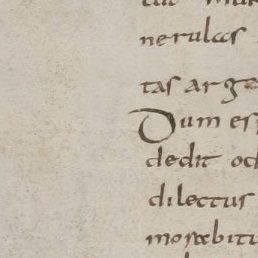 nerulas
tas arge
Dum es
dedit oc
dilectus
morabitu